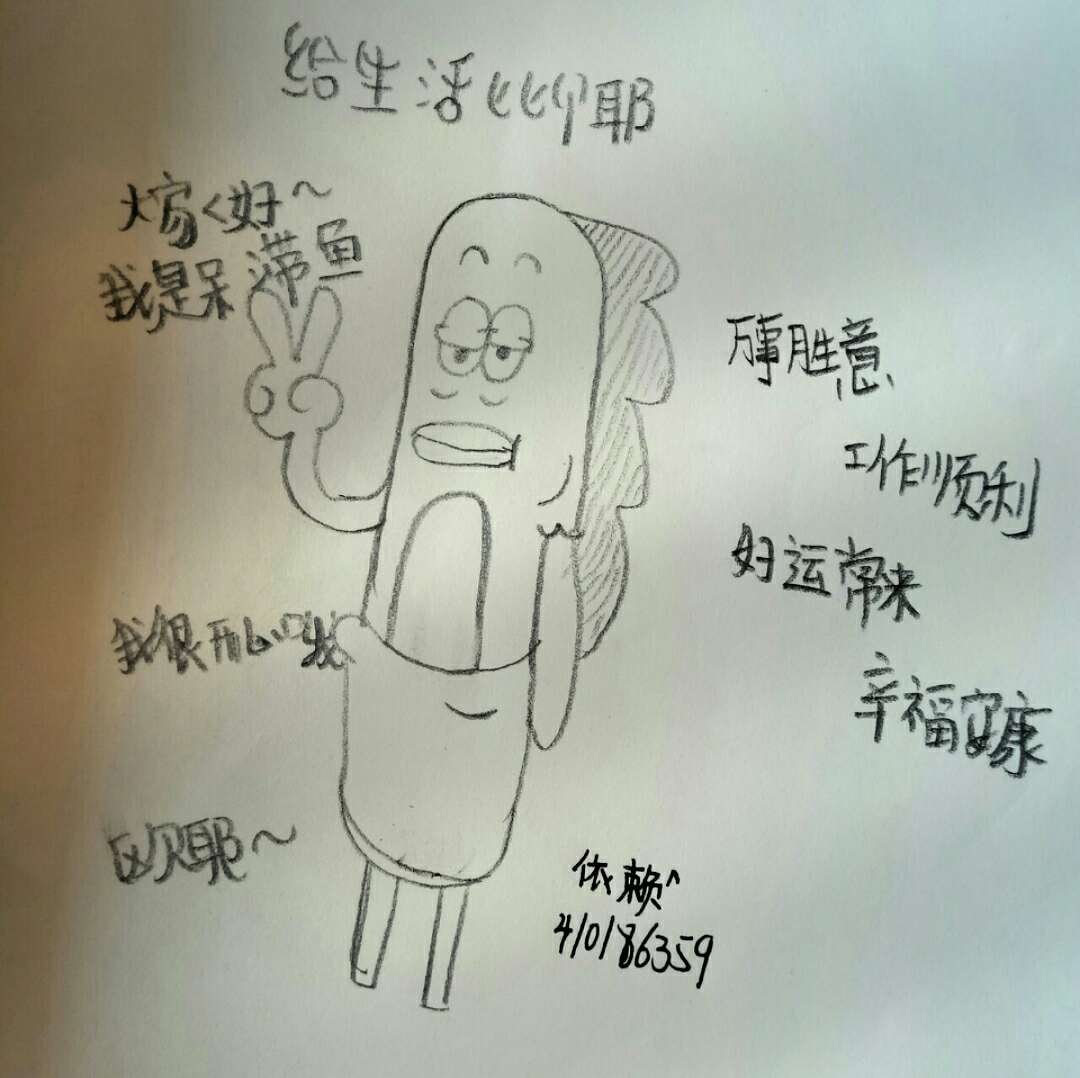 给生活比个耶
大家好~
我是呆滞鱼
我很开心
欧耶~
万事胜意
工作顺利
好运常来
辛福安康
依赖^
410186359